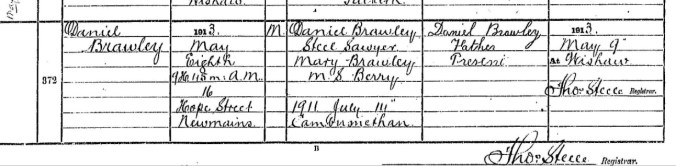 Wishaw
372
Daniel
Brawley
1913.
May
Eighth
9h. 15m. A.M.
16
Hope Street
Newmains
M.
Daniel Brawley
Steel Sawyer
Mary Brawley
M.S. Berry
1911 July 14"
Cambusnethan
Daniel Brawley
Father
Present
1913.
May 9"
At Wishaw
Thos Steele Registrar.
B
Thos Steele Registrar.